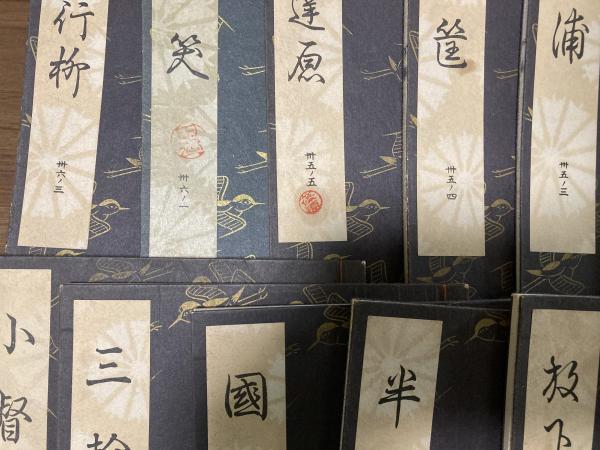 行柳
卅六ノ三
卅六ノ一
蓬原
卅五ノ五
筐
卅五ノ四
浦
卅五ノ三
小督
三輪
國
半
放下